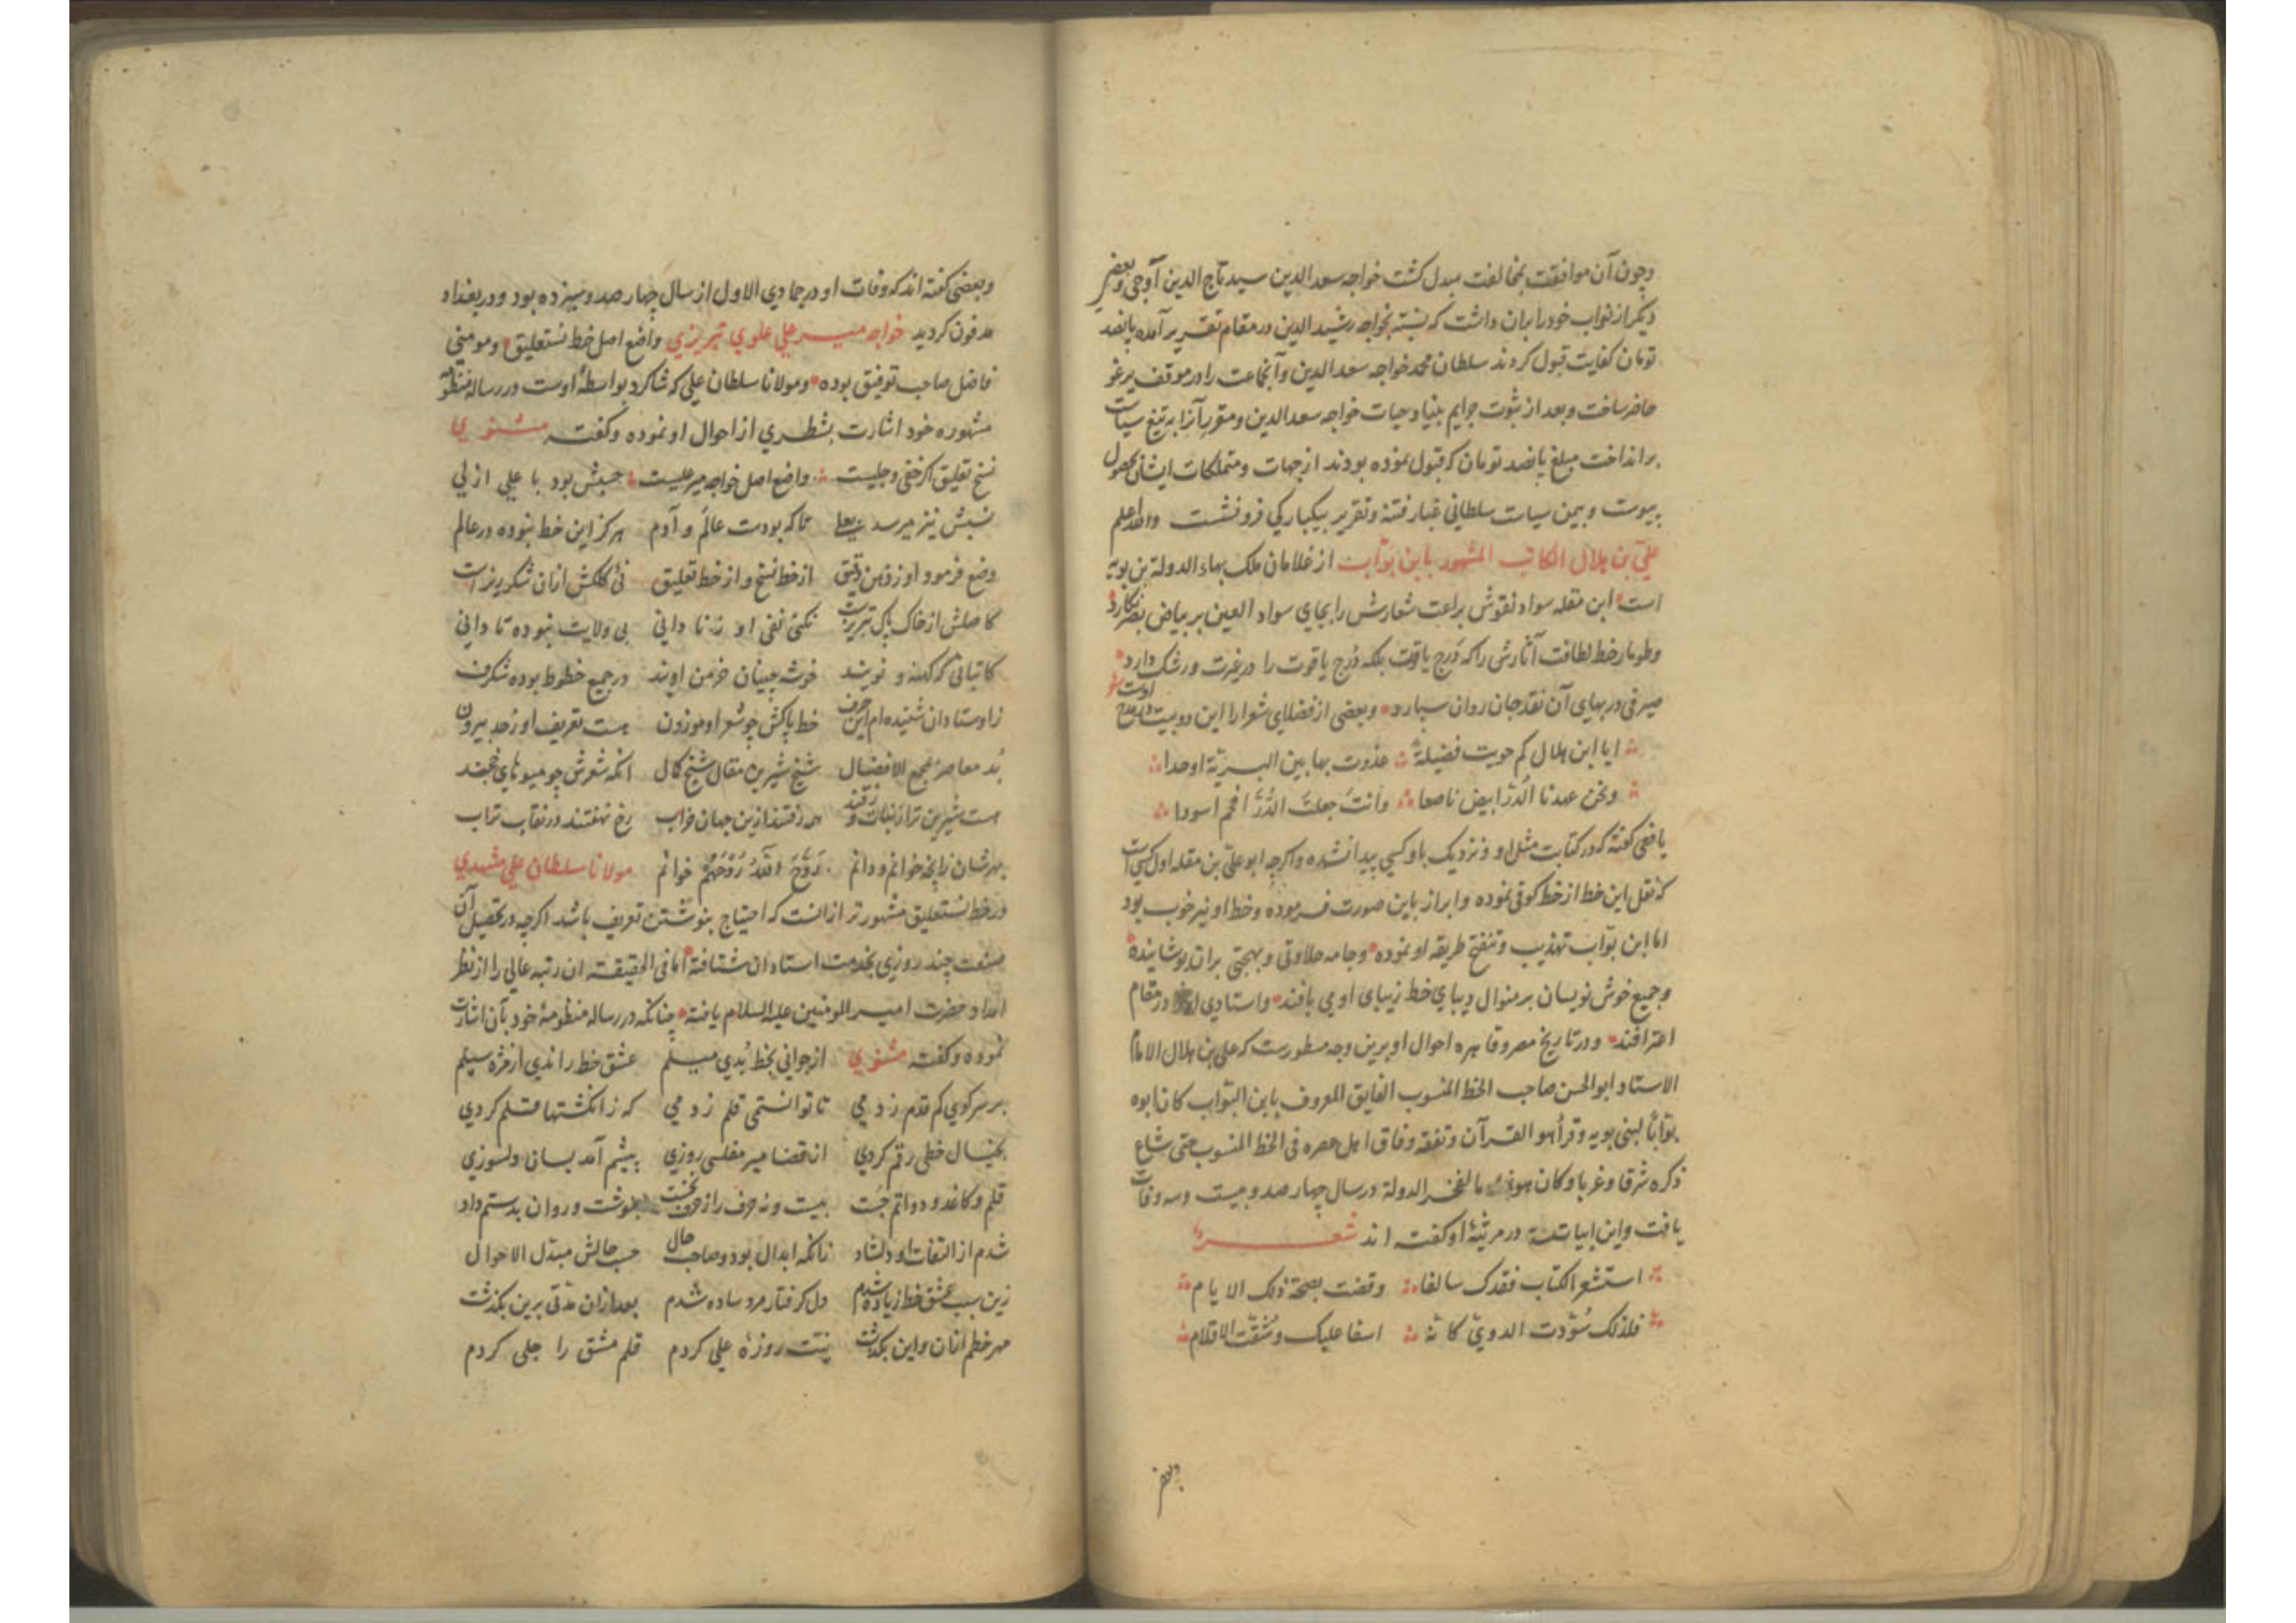 وچون آن موافقت بمخالفت مبدل گشت خواجه سعد الدین سید تاج الدین آوجی وبعضی
دیگر از نواب خود را بران داشت که نسبت بخواجه رشید الدین در مقام تقریر آمده پانصد
تومان کفایت قبول کردند سلطان محمد خواجه سعد الدین وآنجماعت را در موقف یرغو
حاضر ساخت وبعد از ثبوت جرایم بنیاد حیات خواجه سعد الدین ومقرر آنرا به تیغ سیاست
برانداخت مبلغ پانصد تومان که قبول نموده بودند از جهات ومتملکات ایشان بحصول
پیوست وبیمن سیاست سلطانی غبار فتنه وتقریر بیکبارگی فرو نشست والله اعلم
علي بن هلال الکاتب المشهور بابن بواب از غلامان ملک بهاء الدولة بن بویه
است ابن مقله سواد نقوش براعت شعارش را بجای سواد العین بر بیاض بصر نگارد
وطومار خط لطافت آثارش را که درج یاقوت بلکه درج یاقوت را در غیرت ورشک دارد
صیرفی در بهای آن نقد جان روان سپارد وبعضی از فضلای شعرا را این دو بیت در مدح اوست شعر
ایا ابن هلال کم حویت فضیلة غدوت بها بین البریة اوحدا
ونحن عهدنا الدر ابیض ناصعا وانت جعلت الدر افحم اسودا
یافعی گفته که در کتابت مثل او ونزدیک باو کسی پیدا نشده واگرچه ابو علی بن مقله اول کسی است
که نقل این خط از خط کوفی نموده وابراز باین صورت فرموده وخط او نیز خوب بود
اما ابن بواب تهذیب وتنقیح طریقه او نموده وجامه حلاوتی وبهجتی بران پوشانیده
وجمیع خوش نویسان بر منوال دیبای خط زیبای او می بافند واستادی او در مقام
اعترافند ودر تاریخ مصر وقاهره احوال او برین وجه مسطورست که علی بن هلال الامام
الاستاد ابو الحسن صاحب الخط المنسوب الفایق المعروف بابن البواب کان ابوه
بوابا لبنی بویه وقرأ هو القرآن وتفقه وفاق اهل عصره فی الخط المنسوب حتی شاع
ذکره شرقا وغربا وکان هو فخر الدولة در سال چهار صد وبیست وسه وفات
یافت واین ابیات در مرثیۀ او گفته اند شعر
استشعر الکتاب فقدک سالفا وقضت بصحة ذلک الایام
فلذلک سودت الدوی کآنه اسفا علیک وشقت الاقلام
وبعضی
وبعضی گفته اند که وفات او در جمادی الاول از سال چهار صد وسیزده بود ودر بغداد
مدفون گردید خواجه میر علی علوی تبریزی واضع اصل خط نستعلیق ومومنی
فاضل صاحب توفیق بوده ومولانا سلطان علی که شاگرد بواسطۀ اوست در رساله منظومه
مشهوره خود اشارت بشطری از احوال او نموده وگفته مثنوی
نسخ تعلیق اگر خفی وجلیست واضع اصل خواجه میر علیست جنبش بود با علی ازلی
نسبش نیز میرسد بعلی تا که بودست عالم و آدم هرگز این خط نبوده در عالم
وضع فرمود او ز ذهن دقیق از خط نسخ و از خط تعلیق نی کلکش ازان شکر ریزست
کاصلش از خاک پاک تبریزست نکنی نفی او ز نادانی بی ولایت نبوده تا دانی
کاتبانی که کهنه و نویند خوشه چینان خرمن اویند در جمیع خطوط بوده شگرف
ز اوستادان شنیده ام این حرف خط پاکش چو شعر او موزون هست تعریف او ز حد بیرون
بد معاصر بمجمع الافضال شیخ شیرین مقال شیخ کمال انکه شعرش چو میوهای خجند
هست شیرین تر از نبات وز قند همه رفتند ازین جهان خراب رخ نهفتند در نقاب تراب
بهر شان زانچه خوانم ودانم روح الله روحهم خوانم مولانا سلطان علی مشهدی
در خط نستعلیق مشهورتر از انست که احتیاج بنوشتن تعریف باشد اگرچه در تحصیل آن
صنعت چند روزی بخدمت استادان شتافته اما فی الحقیقه ان رتبه عالی را از نظر
امداد حضرت امیر المومنین علیه السلام یافته چنانکه در رساله منظومۀ خود بآن اشارت
نموده وگفته مثنوی از جوانی بخط بدی میلم عشق خط راندی از مژه سیلم
بر سر کوی کم قدم زدمی تا توانستمی قلم زدمی که ز انگشتها قلم کردی
بخیال خطی رقم کردی از قضا میر مفلسی روزی پیشم آمد بسان دلسوزی
قلم وکاغذ و دواتم جست بیست ونه حرف را ز حرف نخست بنوشت وروان بدستم داد
شدم از التفات او دلشاد زانکه ابدال بود وصاحب حال حسب حالش مبدل الاحوال
زین سبب عشق خط زیاده شدم دل گرفتار مرد ساده شدم بعد ازان مدتی برین بگذشت
مهر خطم ازان واین بگذشت نیت روزۀ علی کردم قلم مشق را جلی کردم